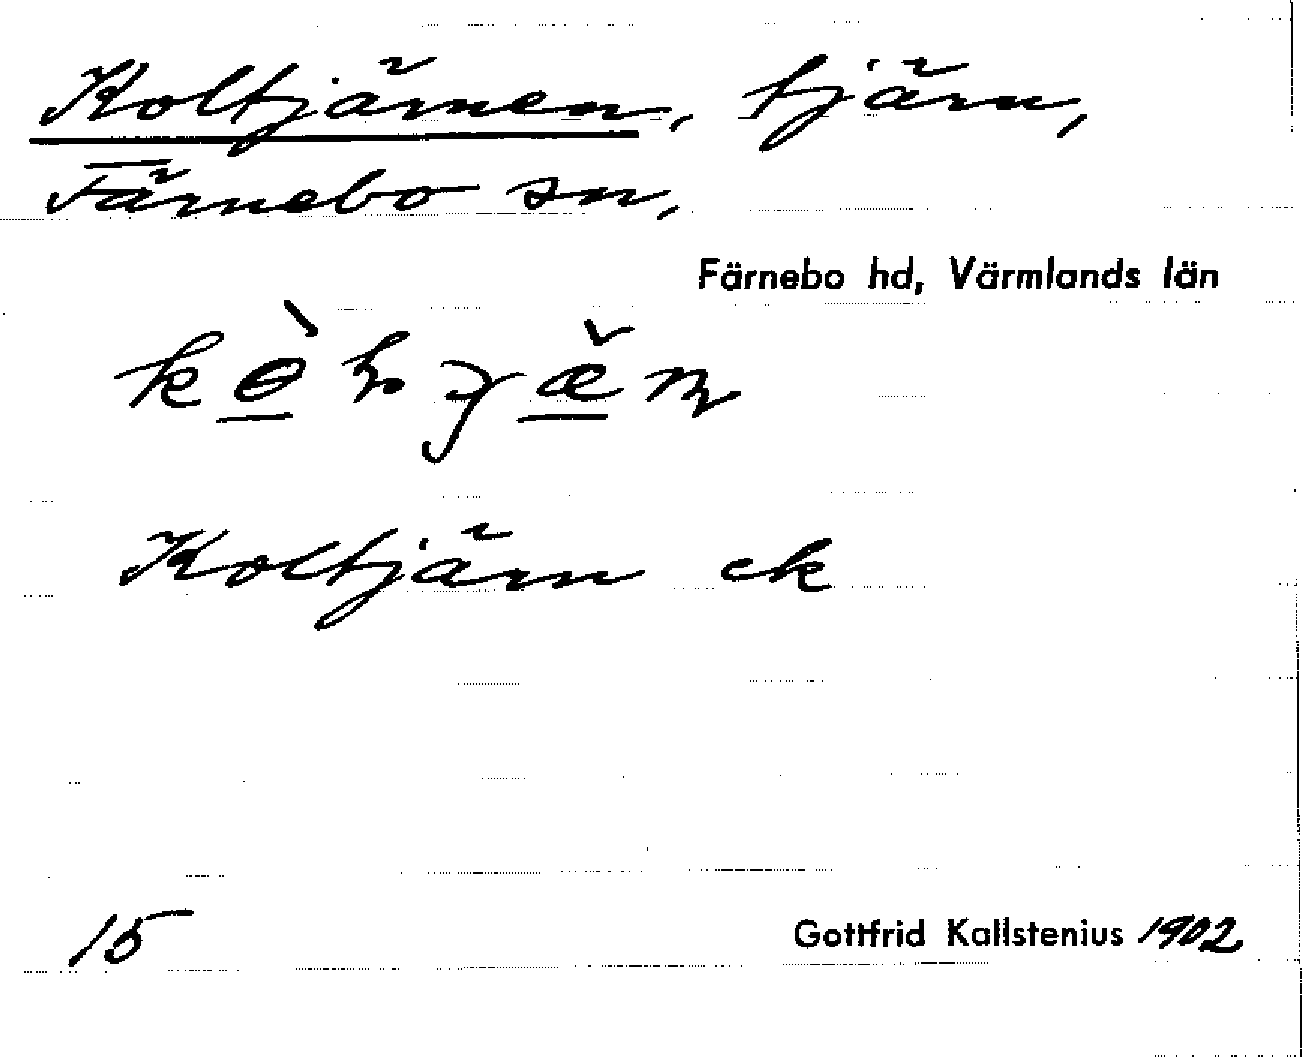 Koltjärnen, tjärn,
Färnebo sn,
Färnebo hd, Värmlands län
Koltjärn ek
15
Gottfrid Kallstenius 1902